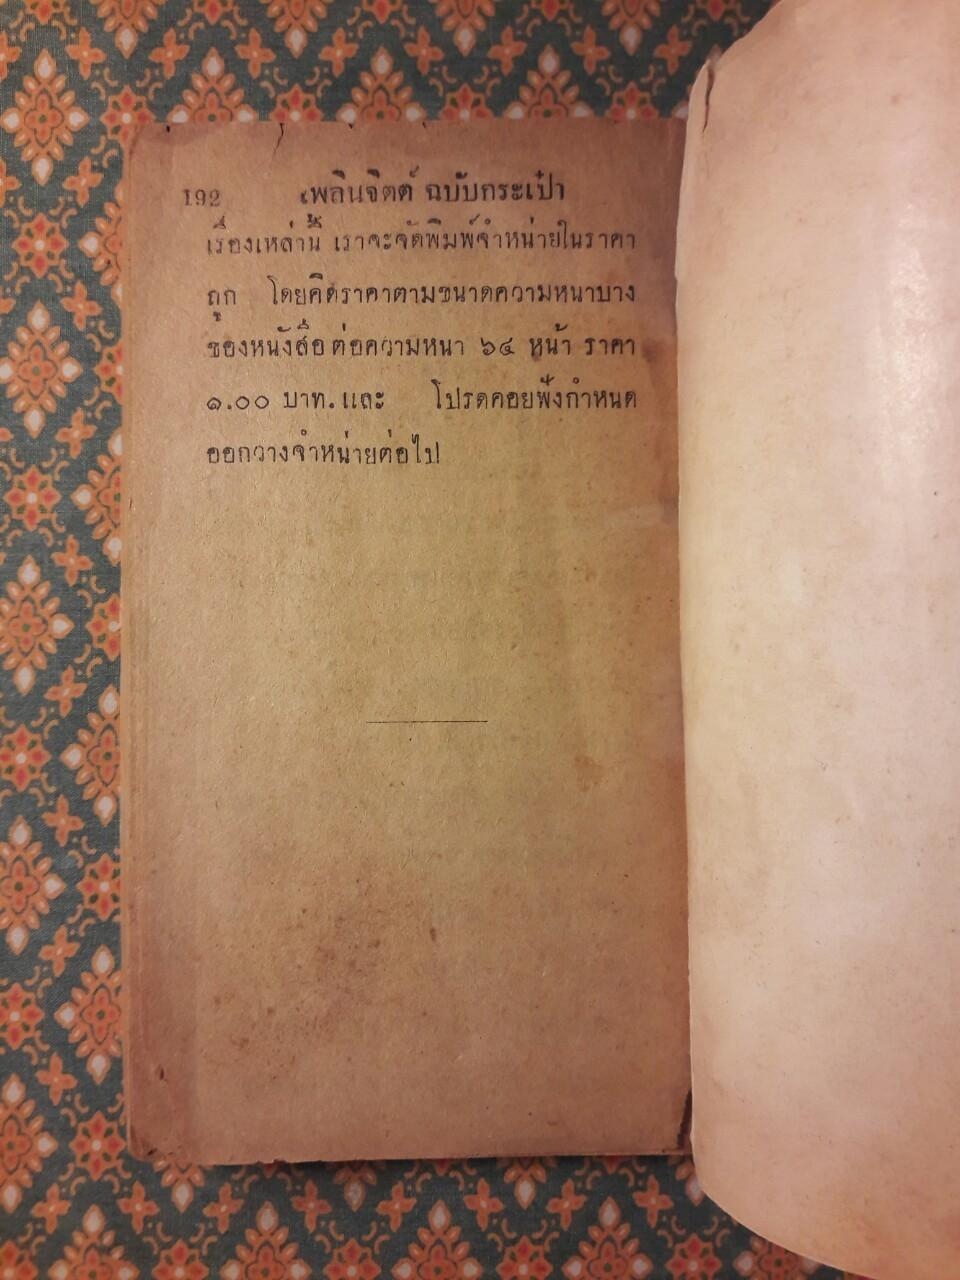 192 เพลินจิตต์ ฉบับกระเป๋า
เรื่องเหล่านี้ เราจะจัดพิมพ์จำหน่ายในราคา
ถูก โดยคิดราคาตามขนาดความหนาบาง
ของหนังสือ ต่อความหนา ๖๔ หน้า ราคา
๑.๐๐ บาท. และ โปรดคอยฟังกำหนด
ออกวางจำหน่ายต่อไป